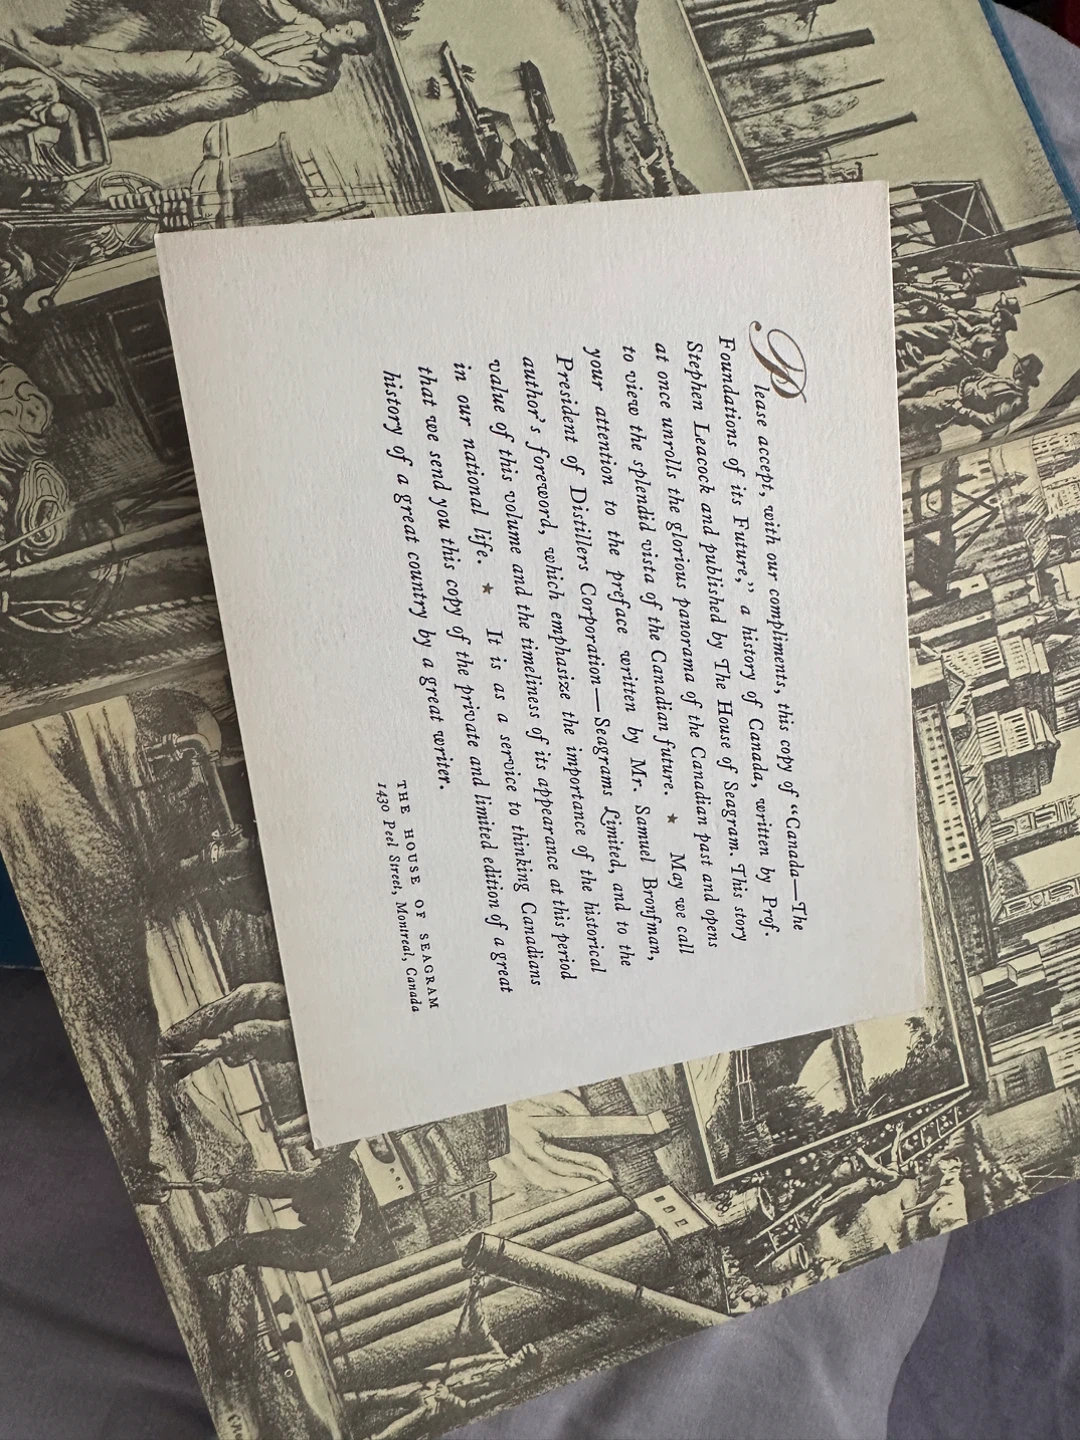 Please accept, with our compliments, this copy of “Canada—The
Foundations of its Future,” a history of Canada, written by Prof.
Stephen Leacock and published by The House of Seagram. This story
at once unrolls the glorious panorama of the Canadian past and opens
to view the splendid vista of the Canadian future. ★ May we call
your attention to the preface written by Mr. Samuel Bronfman,
President of Distillers Corporation—Seagrams Limited, and to the
author's foreword, which emphasize the importance of the historical
value of this volume and the timeliness of its appearance at this period
in our national life. ★ It is as a service to thinking Canadians
that we send you this copy of the private and limited edition of a great
history of a great country by a great writer.
THE HOUSE OF SEAGRAM
1430 Peel Street, Montreal, Canada